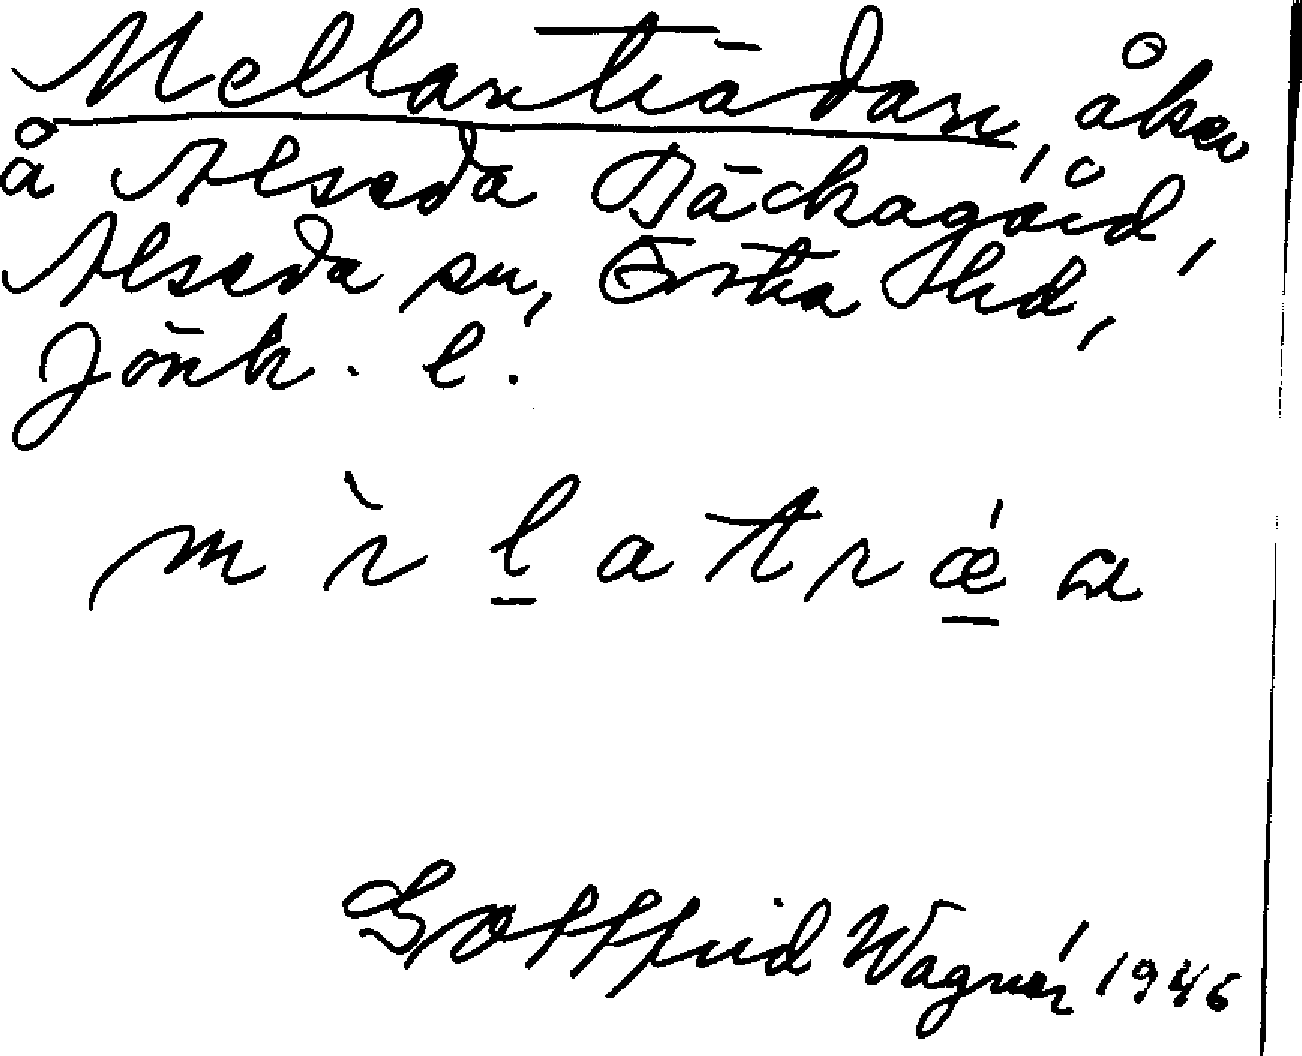 Mellanträdan, åker
å Alseda Bäckagård,
Alseda sn, Östra Hd,
Jönk. l.
Gottfrid Wagnér 1946